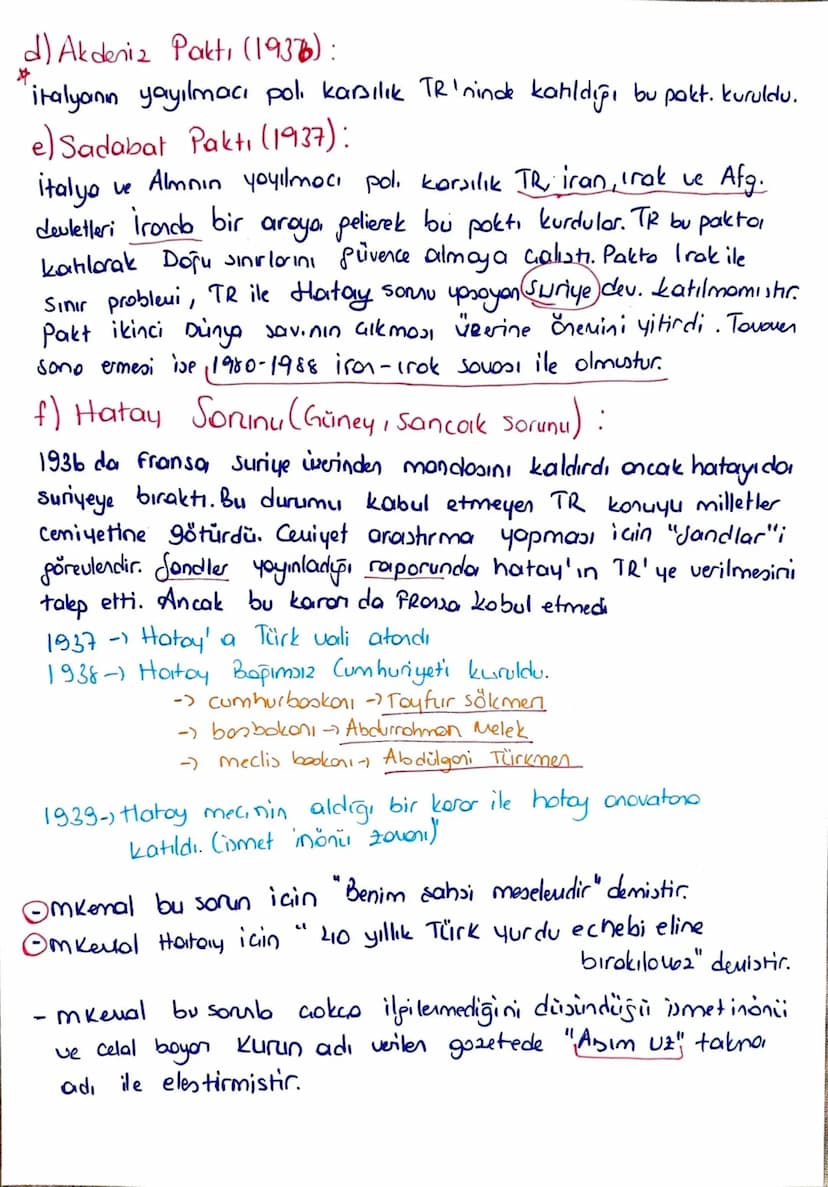 d) Akdeniz Paktı (1936):
* italyanın yayılmacı poli karsılık TR'ninde katıldığı bu pakt. kuruldu.
e) Sadabat Paktı (1937):
İtalya ve Almnın yayılmacı poli karsılık TR, iran, ırak ve Afg.
devletleri İranda bir araya gelerek bu paktı kurdular. TR bu pakta
katılarak Doğu sınırlarını güvence almaya calıstı. Pakta Irak ile
sınır problemi, TR ile Hatay sorunu yasayan Suriye dev. katılmamıstır.
Pakt ikinci Dünya sav.nın cıkması üzerine önemini yitirdi. Tamamen
sona ermesi ise, 1980-1988 iran-ırak savası ile olmustur.
f) Hatay Sorunu (Güney, Sancak sorunu):
1936 da fransa suriye üzerinden mandasını kaldırdı ancak hatayıda
suriyeye bıraktı. Bu durumu kabul etmeyen TR konuyu milletler
cemiyetine götürdü. Cemiyet arastırma yapması icin "Sandlar"i
görevlendir. Sandler yayınladığı raporunda hatay'ın TR'ye verilmesini
talep etti. Ancak bu kararı da fransa kabul etmedi
1937 -> Hatay'a Türk vali atandı
1938 -> Hatay Bağımsız Cumhuriyeti kuruldu.
-> cumhurbaskanı -> Tayfur sökmen
-> basbakanı -> Abdurrahman Melek
-> meclis baskanı -> Abdülgani Türkmen
1939 -> Hatay mec.nin aldığı bir karar ile hatay anavatana
katıldı. (ismet inönü zamanı)
- mkemal bu sorun icin "Benim sahsi meselemdir" demistir.
- mkemal Hatay icin "40 yıllık Türk yurdu ecnebi eline
bırakılamaz" demistir.
- mkemal bu sorunla cokca ilgilenmediğini düsündüğü ismet inönü
ve celal bayarı Kurun adı verilen gazetede "Asım Uz" takma
adı ile elestirmistir.